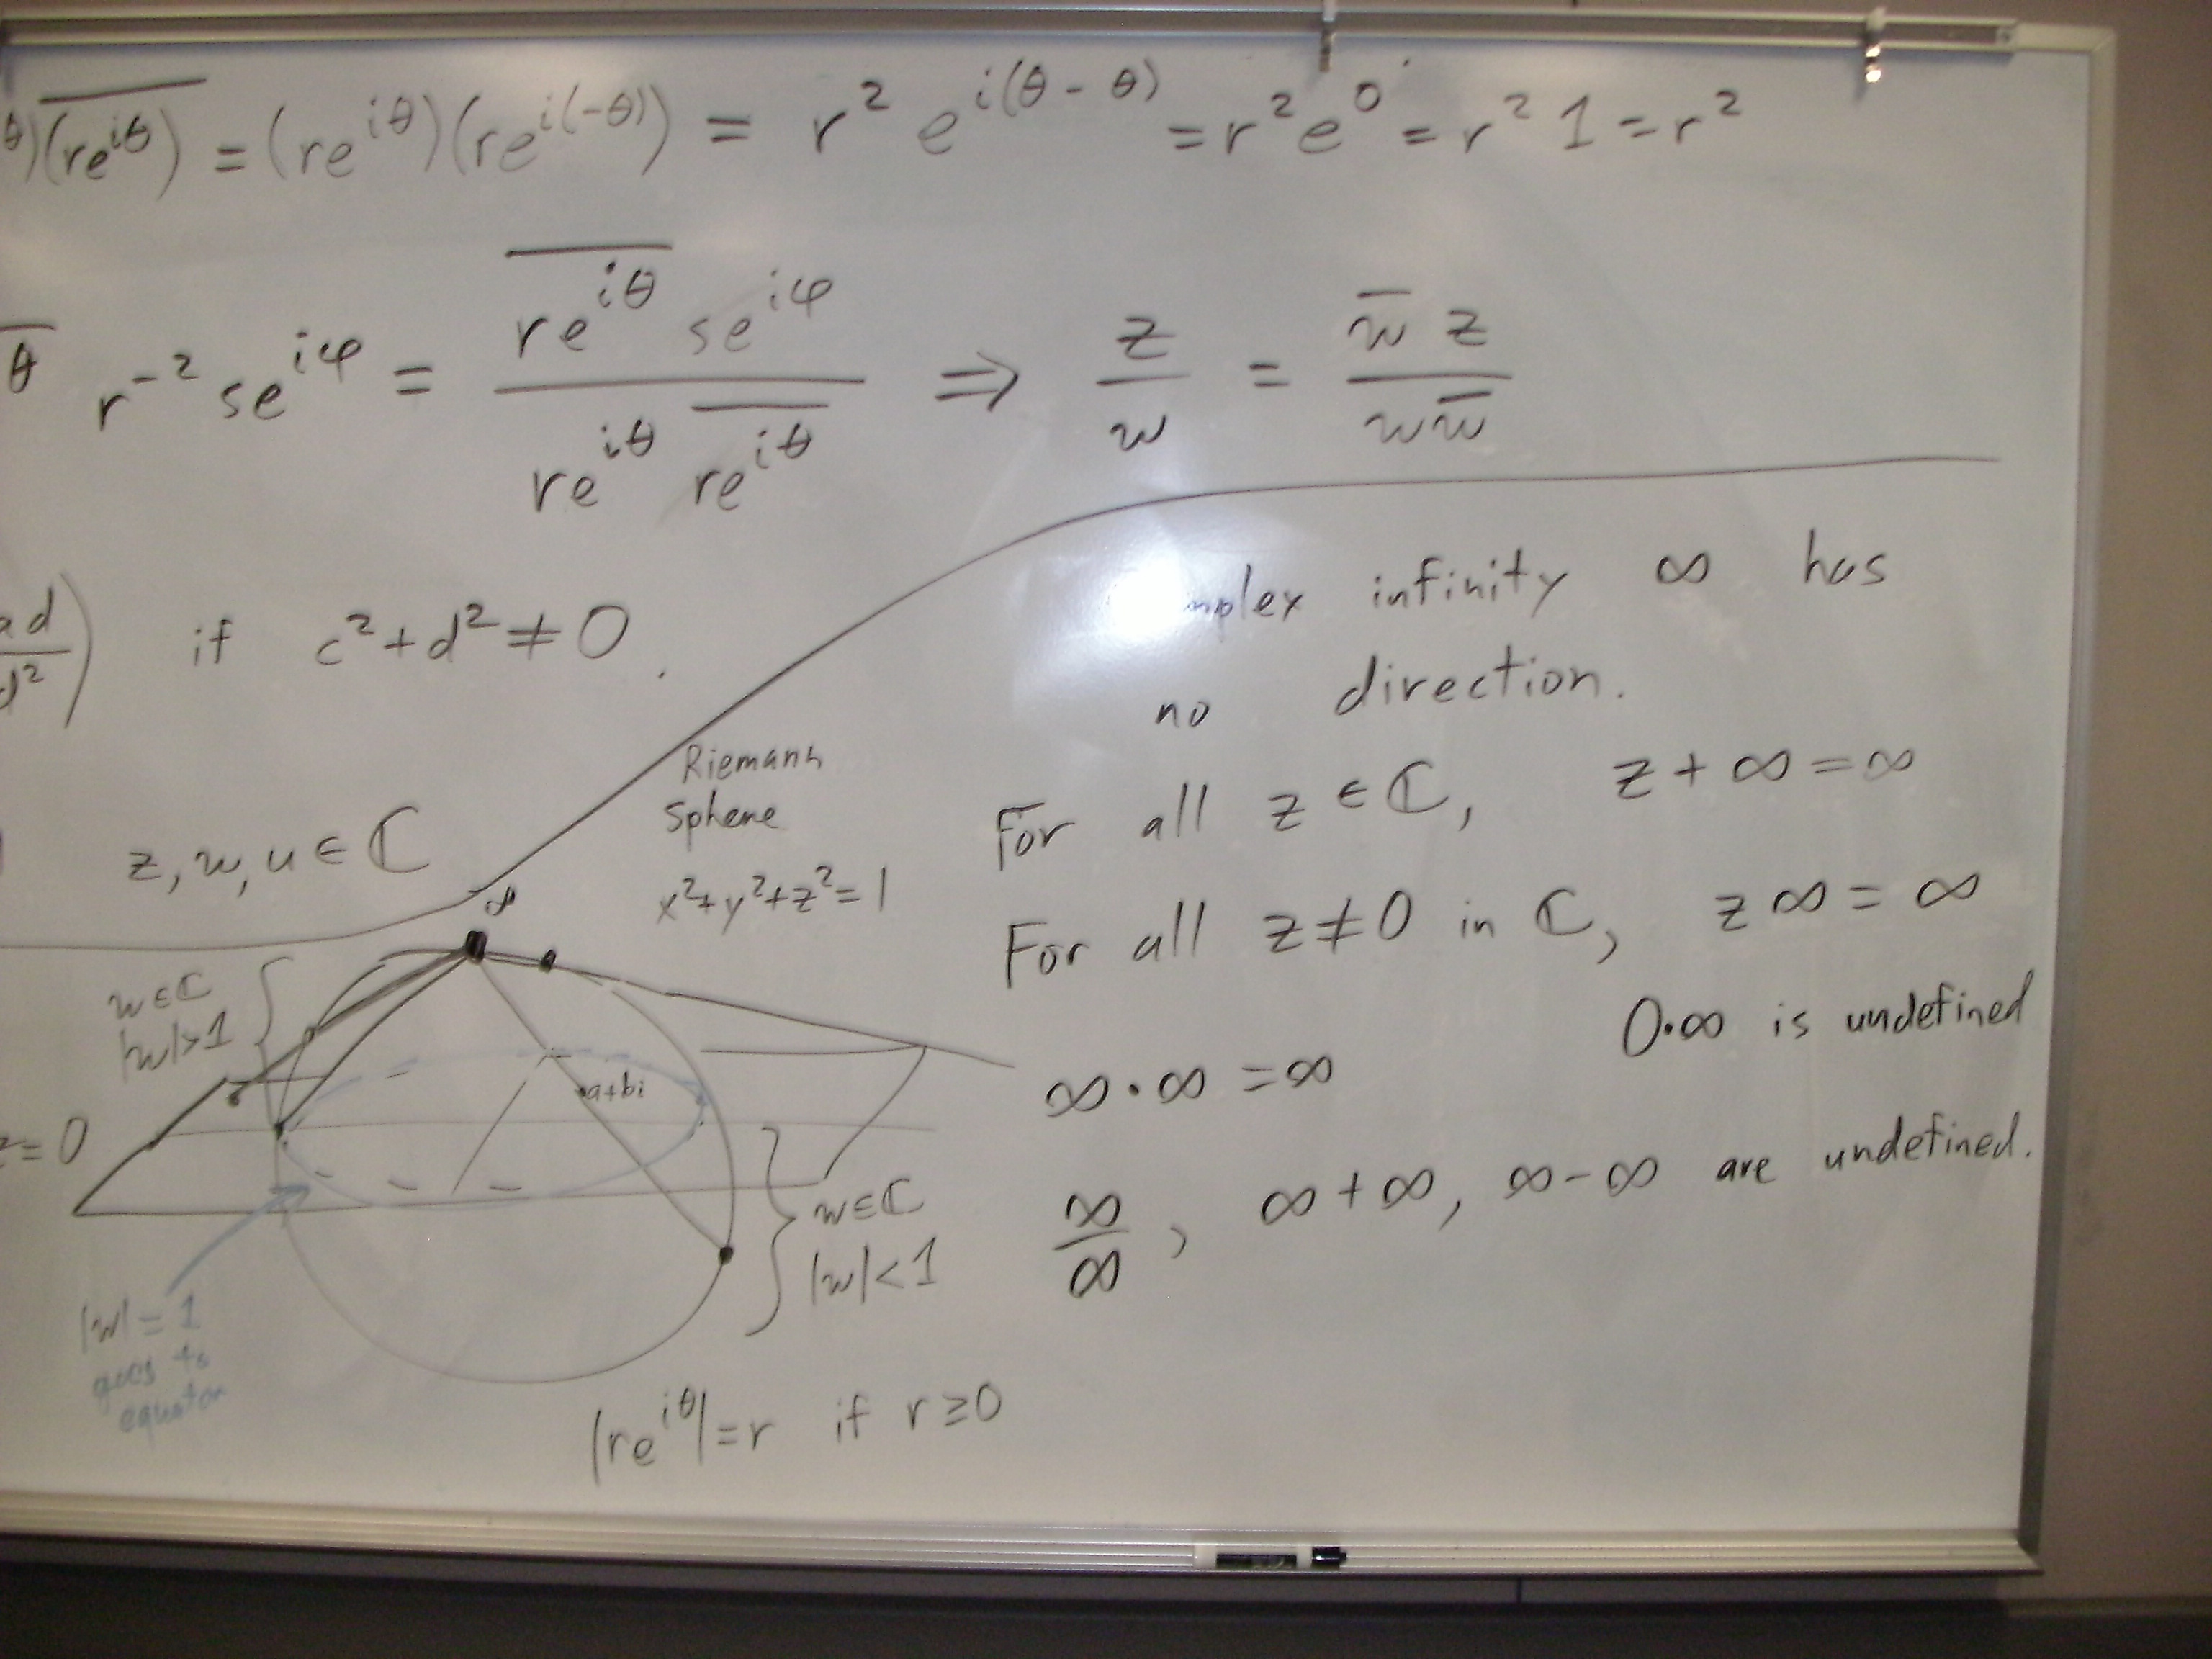 θ)(re^{iθ})‾ = (re^{iθ})(re^{i(-θ)}) = r² e^{i(θ - θ)} = r²e⁰ = r² 1 = r²
θ‾ r⁻² se^{iφ} = \frac{\overline{re^{iθ}} se^{iφ}}{re^{iθ} \overline{re^{iθ}}} ⇒ \frac{z}{w} = \frac{\overline{w} z}{w\overline{w}}
ad
d² ) if c² + d² ≠ 0.
mplex infinity ∞ has
no direction.
Riemann
Sphere
x²+y²+z²=1
z, w, u ∈ ℂ
∞
For all z ∈ ℂ, z + ∞ = ∞
For all z ≠ 0 in ℂ, z ∞ = ∞
0·∞ is undefined
∞ · ∞ = ∞
∞/∞ , ∞ + ∞, ∞ - ∞ are undefined.
w ∈ ℂ
|w|>1
a+bi
z = 0
w ∈ ℂ
|w| < 1
|w| = 1
goes to
equator
|re^{iθ}| = r if r ≥ 0